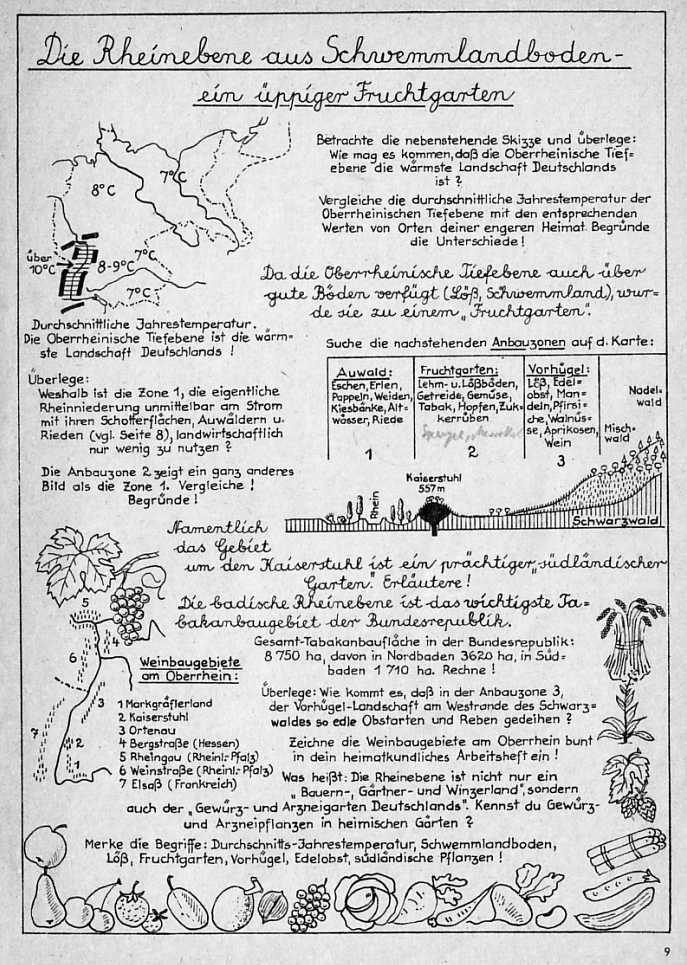 Die Rheinebene aus Schwemmlandboden-
ein üppiger Fruchtgarten
Betrachte die nebenstehende Skizze und überlege:
Wie mag es kommen, daß die Oberrheinische Tief=
ebene die wärmste Landschaft Deutschlands
ist ?
Vergleiche die durchschnittliche Jahrestemperatur der
Oberrheinischen Tiefebene mit den entsprechenden
Werten von Orten deiner engeren Heimat. Begründe
die Unterschiede !
8°C
7°C
über
10°C
8-9°C
7°C
7°C
Da die Oberrheinische Tiefebene auch über
gute Böden verfügt (Löß, Schwemmland), wur=
de sie zu einem „Fruchtgarten".
Durchschnittliche Jahrestemperatur.
Die Oberrheinische Tiefebene ist die wärm=
ste Landschaft Deutschlands !
Suche die nachstehenden Anbauzonen auf d. Karte:
Überlege:
Weshalb ist die Zone 1, die eigentliche
Rheinniederung unmittelbar am Strom
mit ihren Schotterflächen, Auwäldern u.
Rieden (vgl. Seite 8), landwirtschaftlich
nur wenig zu nutzen ?
Die Anbauzone 2 zeigt ein ganz anderes
Bild als die Zone 1. Vergleiche !
Begründe !
Auwald:
Eschen, Erlen,
Pappeln, Weiden,
Kiesbänke, Alt=
wässer, Riede
1
Fruchtgarten:
Lehm- u. Lößböden,
Getreide, Gemüse,
Tabak, Hopfen, Zuk=
kerrüben
2
Vorhügel:
Löß, Edel=
obst, Man=
deln, Pfirsi=
che, Walnüs=
se, Aprikosen,
Wein
3
Nadel=
wald
Misch=
wald
Rhein
Kaiserstuhl
557 m
Schwarzwald
Namentlich
das Gebiet
um den Kaiserstuhl ist ein prächtiger „südländischer
Garten". Erläutere !
Die badische Rheinebene ist das wichtigste Ta=
bakanbaugebiet der Bundesrepublik.
Gesamt-Tabakanbaufläche in der Bundesrepublik:
8 750 ha, davon in Nordbaden 3620 ha, in Süd=
baden 1 710 ha. Rechne !
5
4
6
3
7
2
1
Weinbaugebiete
am Oberrhein:
1 Markgräflerland
2 Kaiserstuhl
3 Ortenau
4 Bergstraße (Hessen)
5 Rheingau (Rheinl.-Pfalz)
6 Weinstraße (Rheinl.-Pfalz)
7 Elsaß (Frankreich)
Überlege: Wie kommt es, daß in der Anbauzone 3,
der Vorhügel-Landschaft am Westrande des Schwarz=
waldes so edle Obstarten und Reben gedeihen ?
Zeichne die Weinbaugebiete am Oberrhein bunt
in dein heimatkundliches Arbeitsheft ein !
Was heißt: Die Rheinebene ist nicht nur ein
„Bauern-, Gärtner- und Winzerland", sondern
auch der „Gewürz- und Arzneigarten Deutschlands". Kennst du Gewürz-
und Arzneipflanzen in heimischen Gärten ?
Merke die Begriffe: Durchschnitts-Jahrestemperatur, Schwemmlandboden,
Löß, Fruchtgarten, Vorhügel, Edelobst, südländische Pflanzen !
9